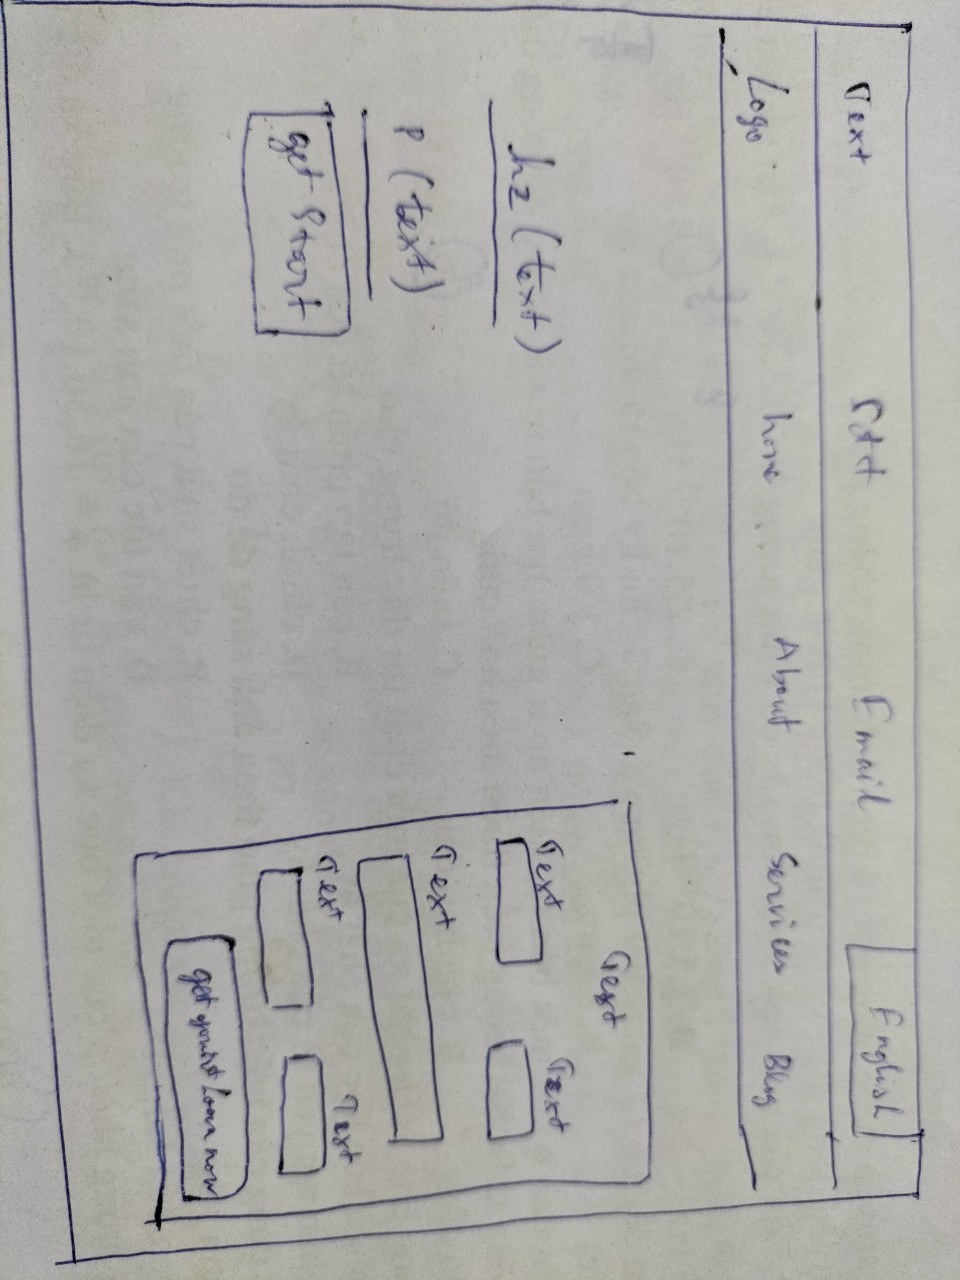 Text Stt Email English
Logo home .. About Services Blog
h2 (text)
P (text)
get Start
Text
Text Text
Text
Text Text
get your Loan now